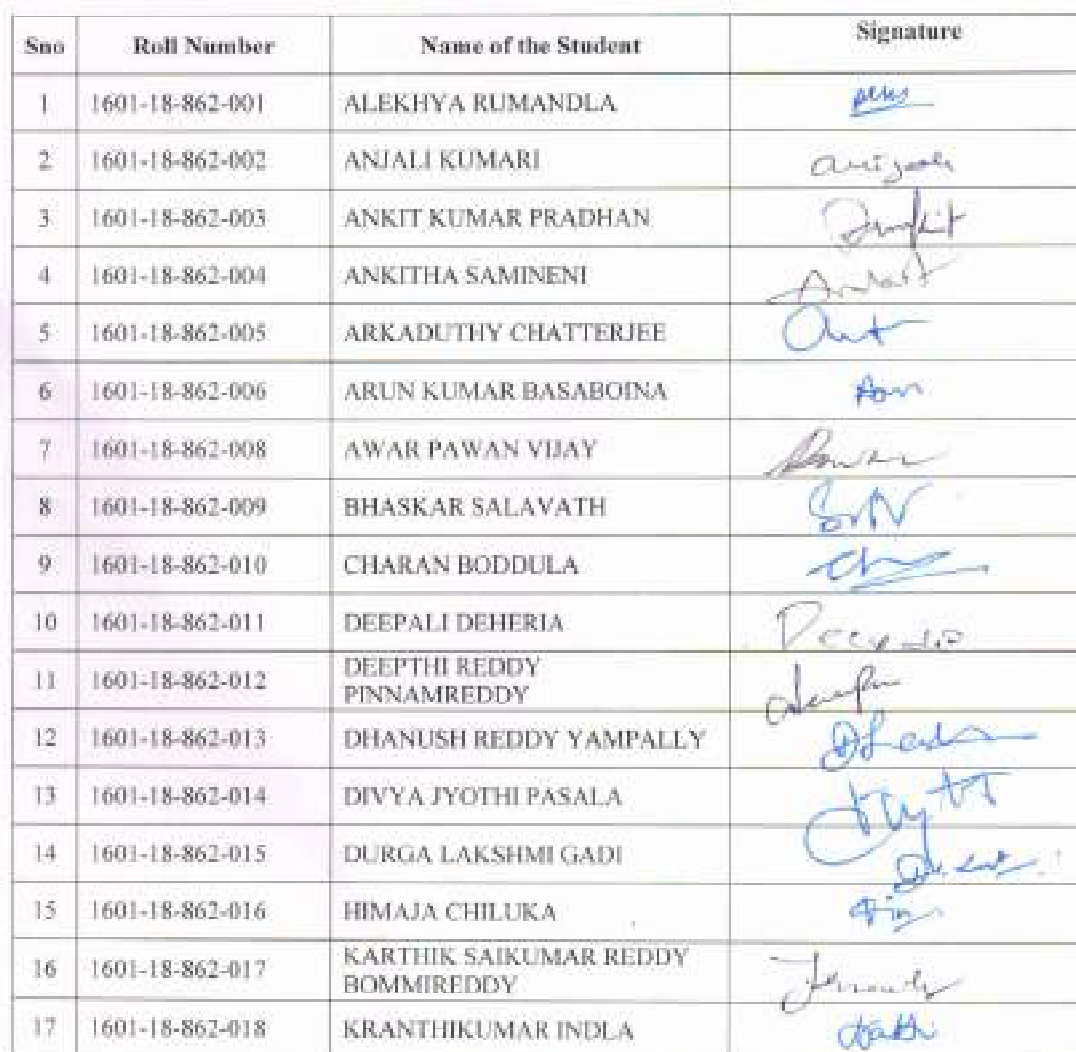 Sno Roll Number Name of the Student Signature
1 1601-18-862-001 ALEKHYA RUMANDLA
2 1601-18-862-002 ANJALI KUMARI
3 1601-18-862-003 ANKIT KUMAR PRADHAN
4 1601-18-862-004 ANKITHA SAMINENI
5 1601-18-862-005 ARKADUTHY CHATTERJEE
6 1601-18-862-006 ARUN KUMAR BASABOINA
7 1601-18-862-008 AWAR PAWAN VIJAY
8 1601-18-862-009 BHASKAR SALAVATH
9 1601-18-862-010 CHARAN BODDULA
10 1601-18-862-011 DEEPALI DEHERIA
11 1601-18-862-012 DEEPTHI REDDY
PINNAMREDDY
12 1601-18-862-013 DHANUSH REDDY YAMPALLY
13 1601-18-862-014 DIVYA JYOTHI PASALA
14 1601-18-862-015 DURGA LAKSHMI GADI
15 1601-18-862-016 HIMAJA CHILUKA
16 1601-18-862-017 KARTHIK SAIKUMAR REDDY
BOMMIREDDY
17 1601-18-862-018 KRANTHIKUMAR INDLA